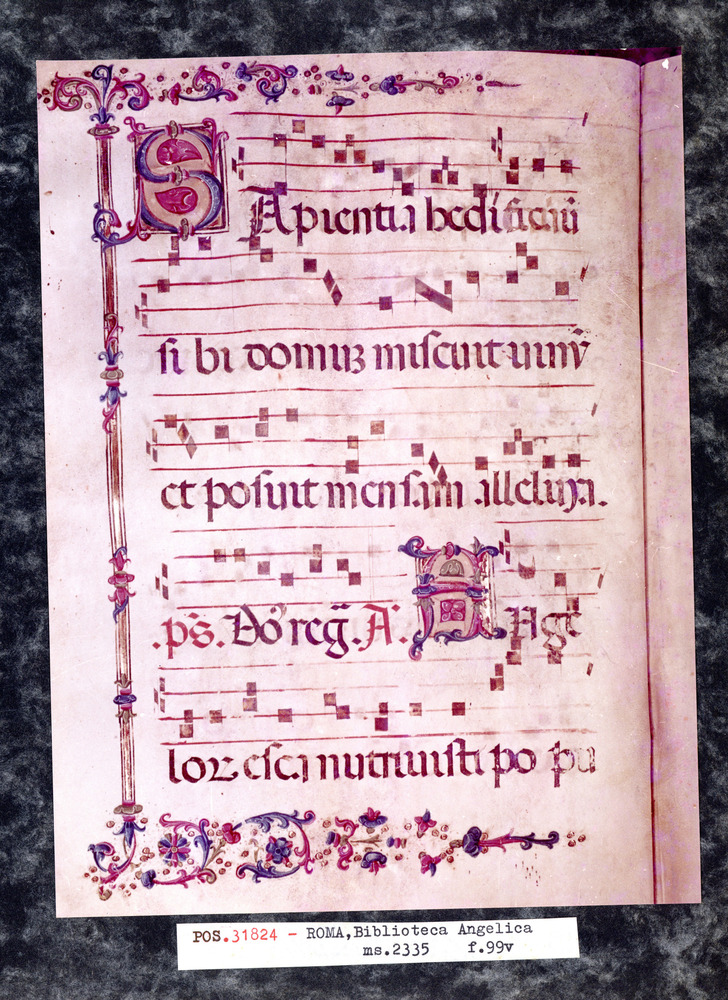 SApientia hedificauit
si bi domuz miscuit uinū
et posuit mensam alleluya.
.ps. Dō reg̃. A. ANge
loz esca nutriuisti po pu
POS.31824 - ROMA,Biblioteca Angelica
ms.2335 f.99v